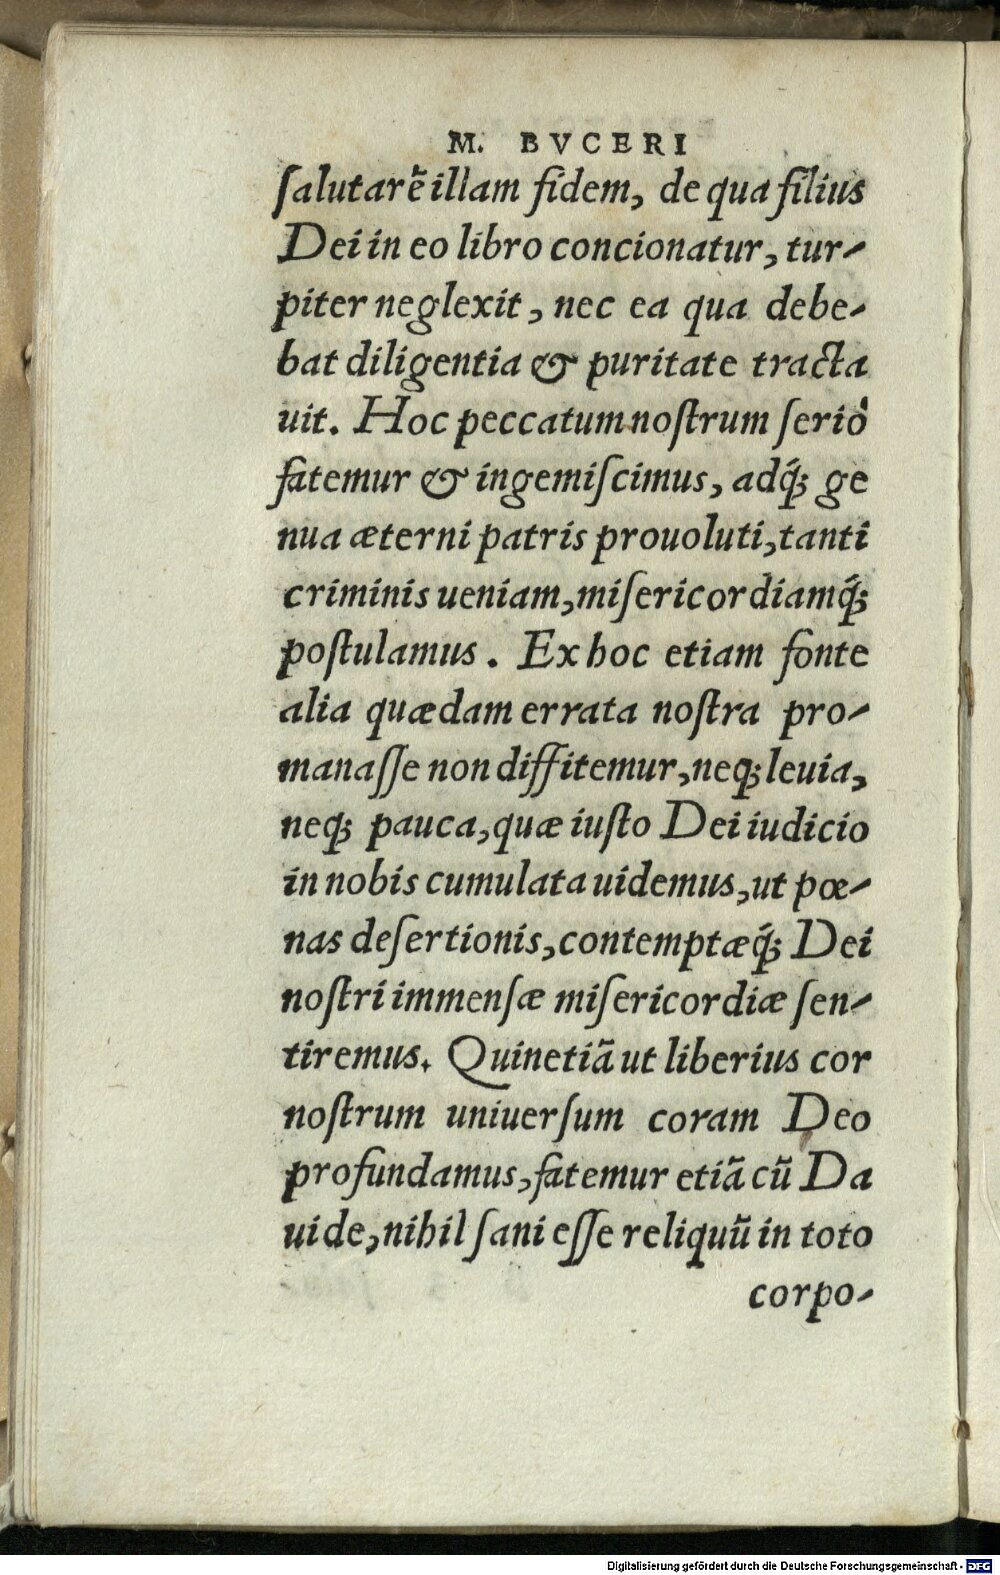 M. BVCERI
ſalutarē illam fidem, de qua filius
Dei in eo libro concionatur, tur-
piter neglexit, nec ea qua debe-
bat diligentia & puritate tracta
uit. Hoc peccatum noſtrum ſeriò
fatemur & ingemiſcimus, adq́ꝫ ge
nua æterni patris prouoluti, tanti
criminis ueniam, miſericordiamq́ꝫ
poſtulamus. Ex hoc etiam fonte
alia quædam errata noſtra pro-
manaſſe non diffitemur, neqꝫ leuia,
neqꝫ pauca, quæ iuſto Dei iudicio
in nobis cumulata uidemus, ut pœ-
nas deſertionis, contemptæq́ꝫ Dei
noſtri immenſæ miſericordiæ ſen-
tiremus. Quinetiā ut liberius cor
noſtrum uniuerſum coram Deo
profundamus, fatemur etiā cū Da
uide, nihil ſani eſſe reliquū in toto
corpo-
Digitalisierung gefördert durch die Deutsche Forschungsgemeinschaft - DFG